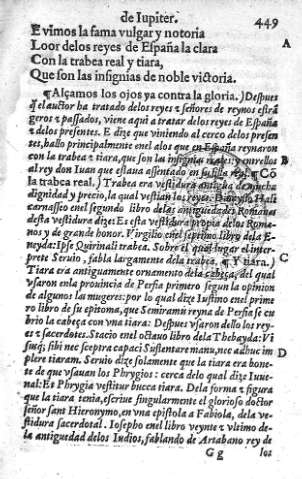 de Iupiter.
449
E vimos la fama vulgar y notoria
A
Loor delos reyes de España la clara
Con la trabea real y tiara,
Que son las insignias de noble victoria.
¶Alçamos los ojos ya contra la gloria.) Despues
q̃l auctor ha tratado delos reyes z señores de reynos estrã
geros z passados, viene aqui a tratar delos reyes de España
z delos presentes. E dize que viniendo al cerco delos presen
tes, hallo principalmente enel alos que en España reynaron
con la trabea z tiara, que son las insignias reales: y entrellos
B
al rey don Iuan que estaua assentado en su silla real. ¶Cõ
la trabea real.) Trabea era vestidura antigua de mucha
dignidad y precio, la qual vestian los reyes. Dionysio Hali
carnasseo enel segundo libro delas antiguedades Romanas
desta vestidura dize: Es esta vestidura propia delos Roma-
nos y de grande honor. Virgilio enel septimo libro dela E-
neyda: Ipse Quirinali trabea. Sobre el qual lugar el inter-
C
prete Seruio, fabla largamente dela trabea. ¶Y tiara.)
Tiara era antiguamente ornamento dela cabeça, del qual
vsaron enla prouincia de Persia primero segun la opinion
de algunos las mugeres: por lo qual dize Iustino enel prime
ro libro de su epitoma, que Semiramis reyna de Persia se cu
brio la cabeça con vna tiara: Despues vsaron dello los rey-
es z sacerdotes. Stacio enel octauo libro dela Thebayda: Vi
suq́; sibi nec sceptra capaci Sustentare manu, nec adhuc im
D
plere tiaram. Seruio dize solamente que la tiara era bone-
te de que vsauan los Phrygios: cerca delo qual dize Iuue-
nal: Et Phrygia vestitur bucca tiara. Dela forma z figura
que la tiara tenia, escriue singularmente el glorioso doctor
señor sant Hieronymo, en vna epistola a Fabiola, dela ve-
stidura sacerdotal. Iosepho enel libro veynte z vltimo de-
la antiguedad delos Iudios, fablando de Artabano rey de
G g
los